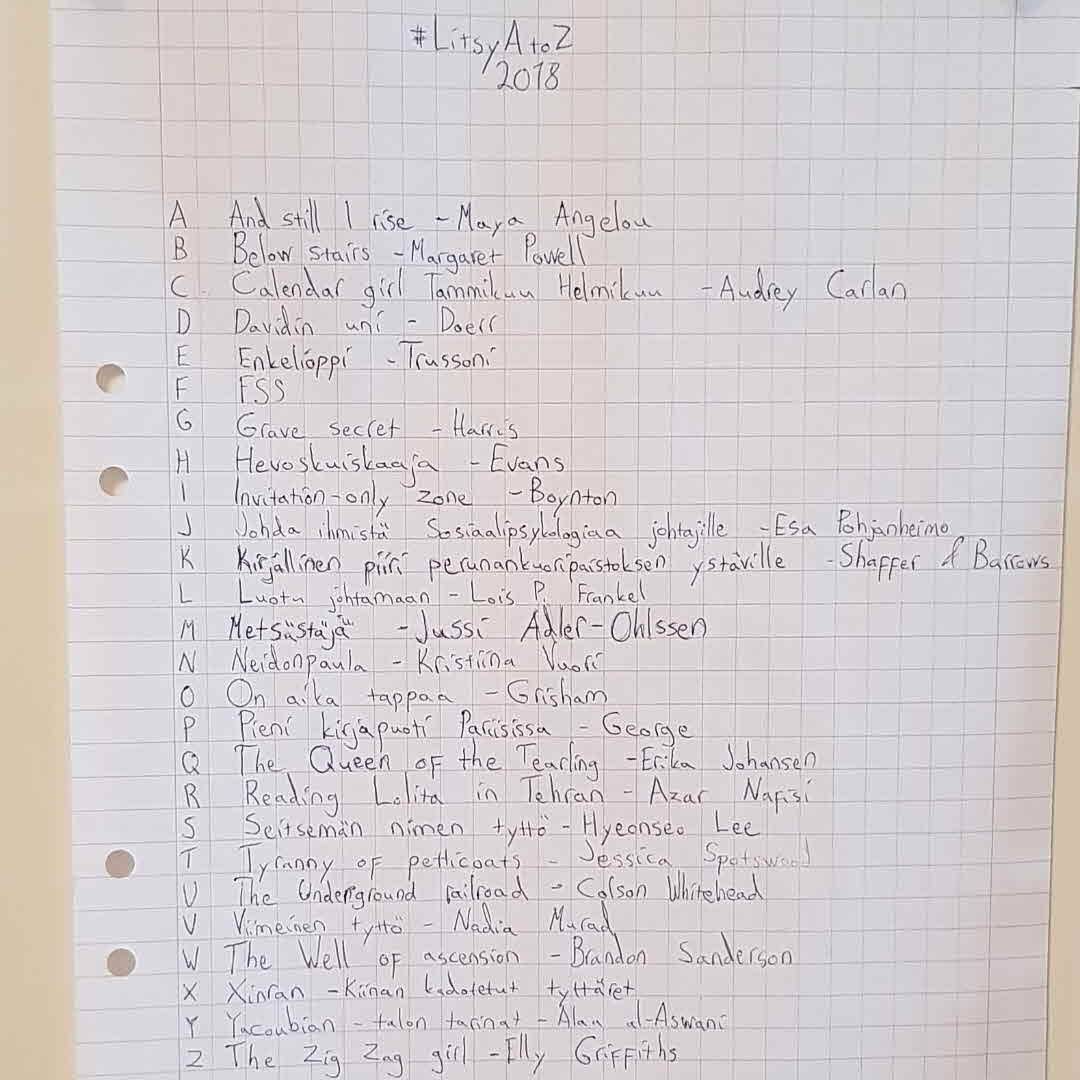 #LitsyAtoZ
2018
A And still I rise - Maya Angelou
B Below stairs - Margaret Powell
C Calendar girl Tammikuu Helmikuu - Audrey Carlan
D Davidin uni - Doerr
E Enkelioppi - Trussoni
F FSS
G Grave secret - Harris
H Hevoskuiskaaja - Evans
I Invitation-only zone - Boynton
J Johda ihmistä Sosiaalipsykologiaa johtajille - Esa Pohjanheimo
K Kirjallinen piiri perunankuoripaistoksen ystäville - Shaffer & Barrows
L Luotu johtamaan - Lois P. Frankel
M Metsästäjä - Jussi Adler-Ohlssen
N Neidonpaula - Kristiina Vuori
O On aika tappaa - Grisham
P Pieni kirjapuoti Pariisissa - George
Q The Queen of the Tearling - Erika Johansen
R Reading Lolita in Tehran - Azar Nafisi
S Seitsemän nimen tyttö - Hyeonseo Lee
T Tyranny of petticoats - Jessica Spotswood
U The Underground railroad - Colson Whitehead
V Viimeinen tyttö - Nadia Murad
W The Well of ascension - Brandon Sanderson
X Xinran - Kiinan kadotetut tyttäret
Y Yacoubian - talon tarinat - Alaa al-Aswani
Z The Zig Zag girl - Elly Griffiths